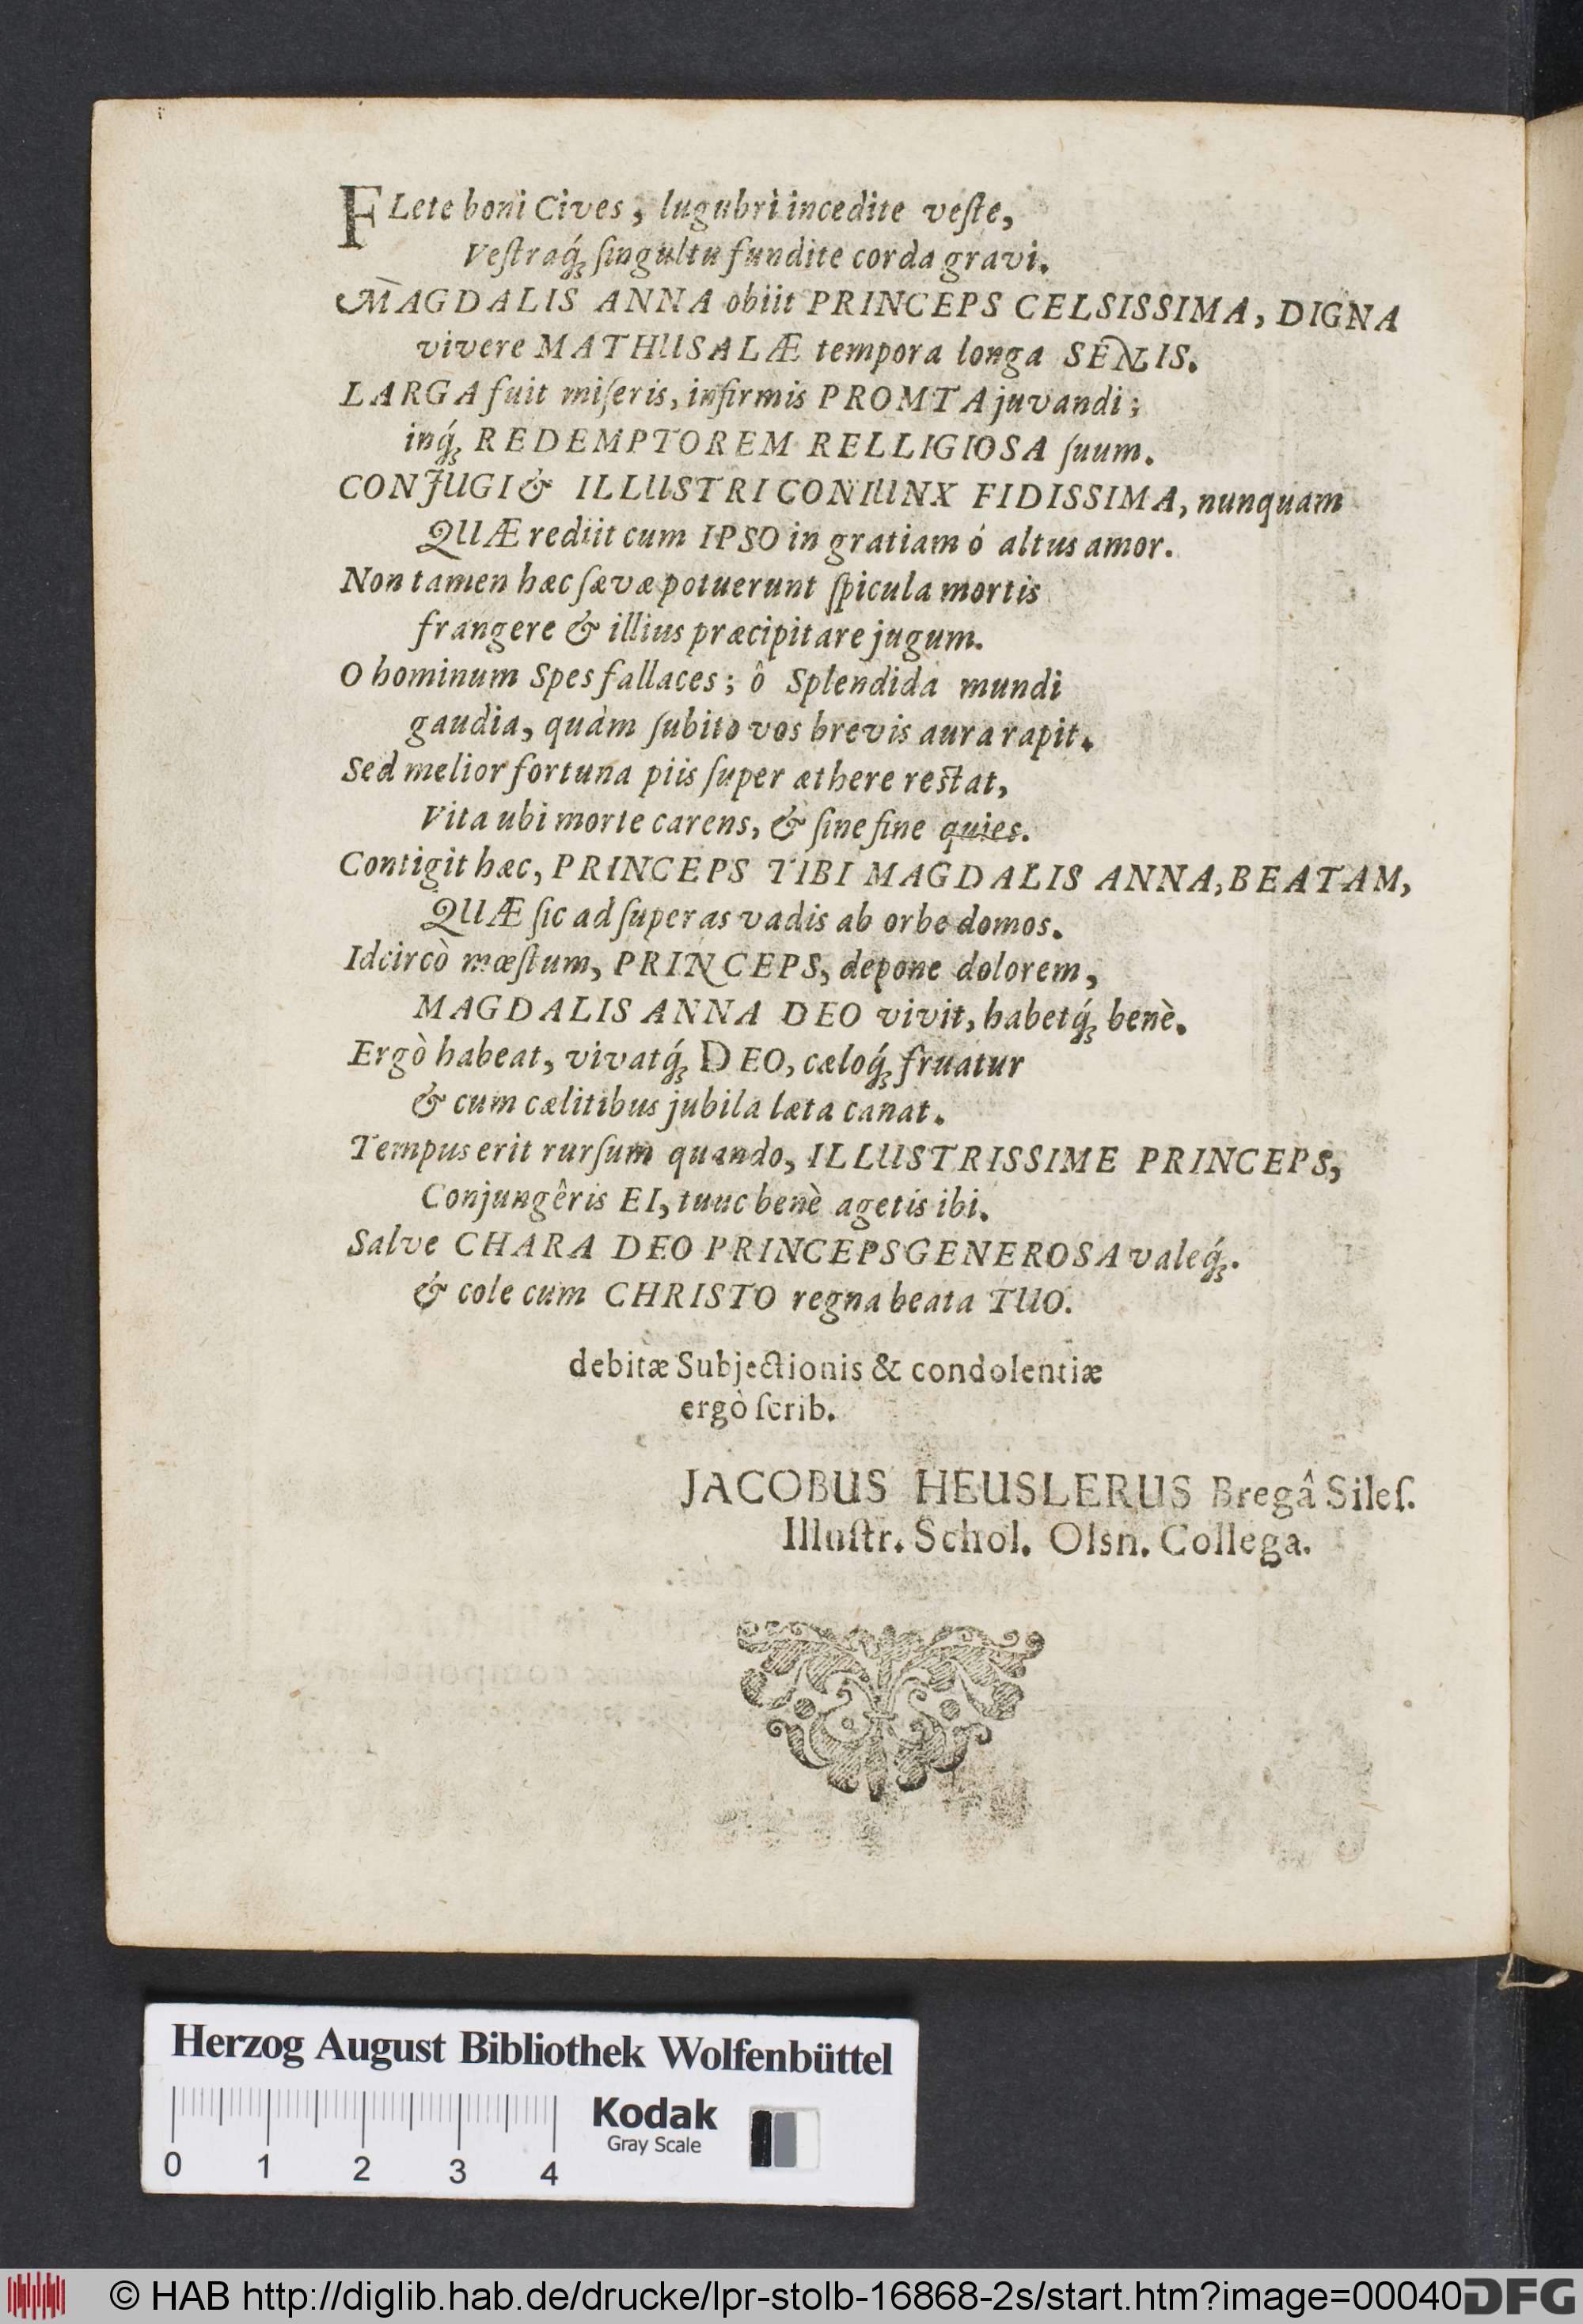 FLete boni Cives, lugubri incedite veſte,
Veſtraq́; ſingultu fundite corda gravi.
MAGDALIS ANNA obiit PRINCEPS CELSISSIMA, DIGNA
vivere MATHUSALÆ tempora longa SENIS.
LARGA fuit miſeris, infirmis PROMTA juvandi;
inq́; REDEMPTOREM RELLIGIOSA ſuum.
CONJUGI & ILLUSTRI CONIUNX FIDISSIMA, nunquam
QUÆ rediit cum IPSO in gratiam ó altus amor.
Non tamen hæc ſævæ potuerunt ſpicula mortis
frangere & illius præcipitare jugum.
O hominum Spes fallaces; ô Splendida mundi
gaudia, quàm ſubito vos brevis aura rapit.
Sed melior fortuna piis ſuper æthere reſtat,
Vita ubi morte carens, & ſine fine quies.
Contigit hæc, PRINCEPS TIBI MAGDALIS ANNA, BEATAM,
QUÆ ſic ad ſuperas vadis ab orbe domos.
Idcircò mœſtum, PRINCEPS, depone dolorem,
MAGDALIS ANNA DEO vivit, habetq́; benè.
Ergò habeat, vivatq́; DEO, cæloq́; fruatur
& cum cælitibus jubila læta canat.
Tempus erit rurſum quando, ILLUSTRISSIME PRINCEPS,
Conjungêris EI, tunc benè agetis ibi.
Salve CHARA DEO PRINCEPS GENEROSA valeq́;.
& cole cum CHRISTO regna beata TUO.
debitæ Subjectionis & condolentiæ
ergò ſcrib.
JACOBUS HEUSLERUS Bregâ Sileſ.
Illuſtr. Schol. Olsn. Collega.
Herzog August Bibliothek Wolfenbüttel
Kodak
Gray Scale
0 1 2 3 4
© HAB http://diglib.hab.de/drucke/lpr-stolb-16868-2s/start.htm?image=00040 DFG